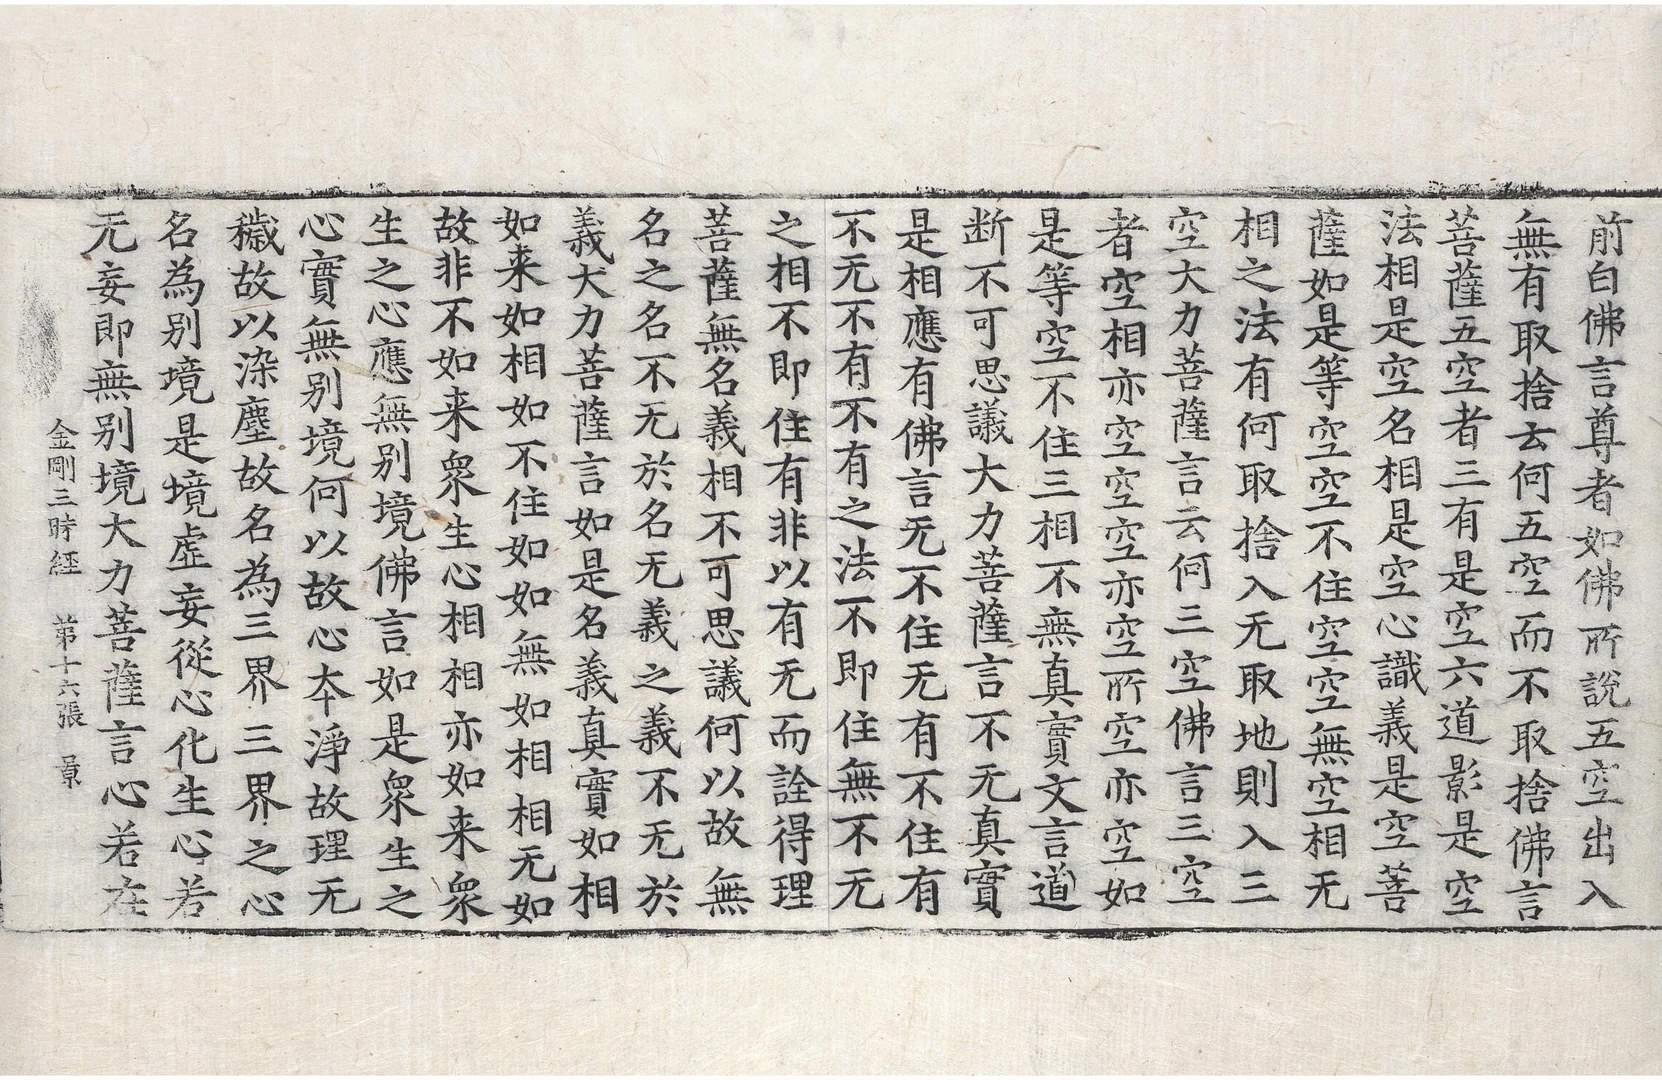 前白佛言尊者如佛所說五空出入
無有取捨云何五空而不取捨佛言
菩薩五空者三有是空六道影是空
法相是空名相是空心識義是空菩
薩如是等空空不住空空無空相无
相之法有何取捨入无取地則入三
空大力菩薩言云何三空佛言三空
者空相亦空空空亦空所空亦空如
是等空不住三相不無真實文言道
断不可思議大力菩薩言不无真實
是相應有佛言无不住无有不住有
不无不有不有之法不即住無不无
之相不即住有非以有无而詮得理
菩薩無名義相不可思議何以故無
名之名不无於名无義之義不无於
義大力菩薩言如是名義真實如相
如来如相如不住如如無如相相无如
故非不如来衆生心相相亦如来衆
生之心應無別境佛言如是衆生之
心實無别境何以故心夲淨故理无
穢故以染塵故名為三界三界之心
名為别境是境虛妄從心化生心若
无妄即無别境大力菩薩言心若在
金剛三昧經　第十六張　景